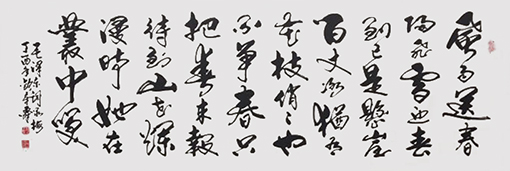 風雨送春
歸飛雪迎春
到已是懸崖
百丈冰猶有
花枝俏俏也
不爭春只
把春來報
待到山花爛
漫時她在
叢中笑
毛澤東詞詠梅
丁酉年